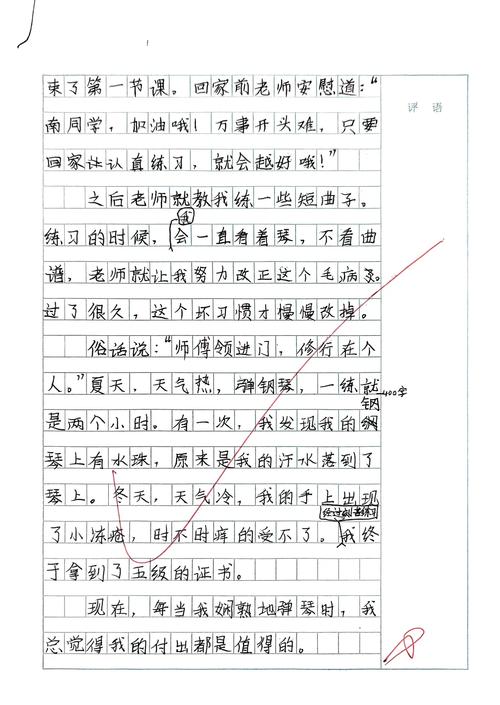 束了第一节课。回家前老师安慰道：“
评语
南同学，加油哦！万事开头难，只要
回家认真练习，就会越好哦！”
之后老师就教我练一些短曲子。
我
练习的时候，会一直看着琴，不看曲
谱，老师就让我努力改正这个毛病。
过了很久，这个坏习惯才慢慢改掉。
俗话说：“师傅领进门，修行在个
人。”夏天，天气热，弹钢琴，一练就
400字
钢
是两个小时。有一次，我发现我的
琴上有水珠，原来是我的汗水落到了
琴上。冬天，天气冷，我的手上出现
经过刻苦练习
了小冻疮，时不时痒的受不了。我终
于拿到了五级的证书。
现在，每当我娴熟地弹琴时，我
总觉得我的付出都是值得的。